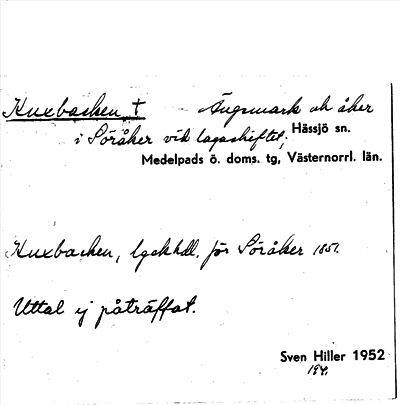 Kuxbacken † Ängsmark och åker
i Söråker vid lagaskiftet; Hässjö sn.
Medelpads ö. doms. tg, Västernorrl. län.
Kuxbacken, lgskhdl. för Söråker 1851.
Uttal ej påträffat.
Sven Hiller 1952